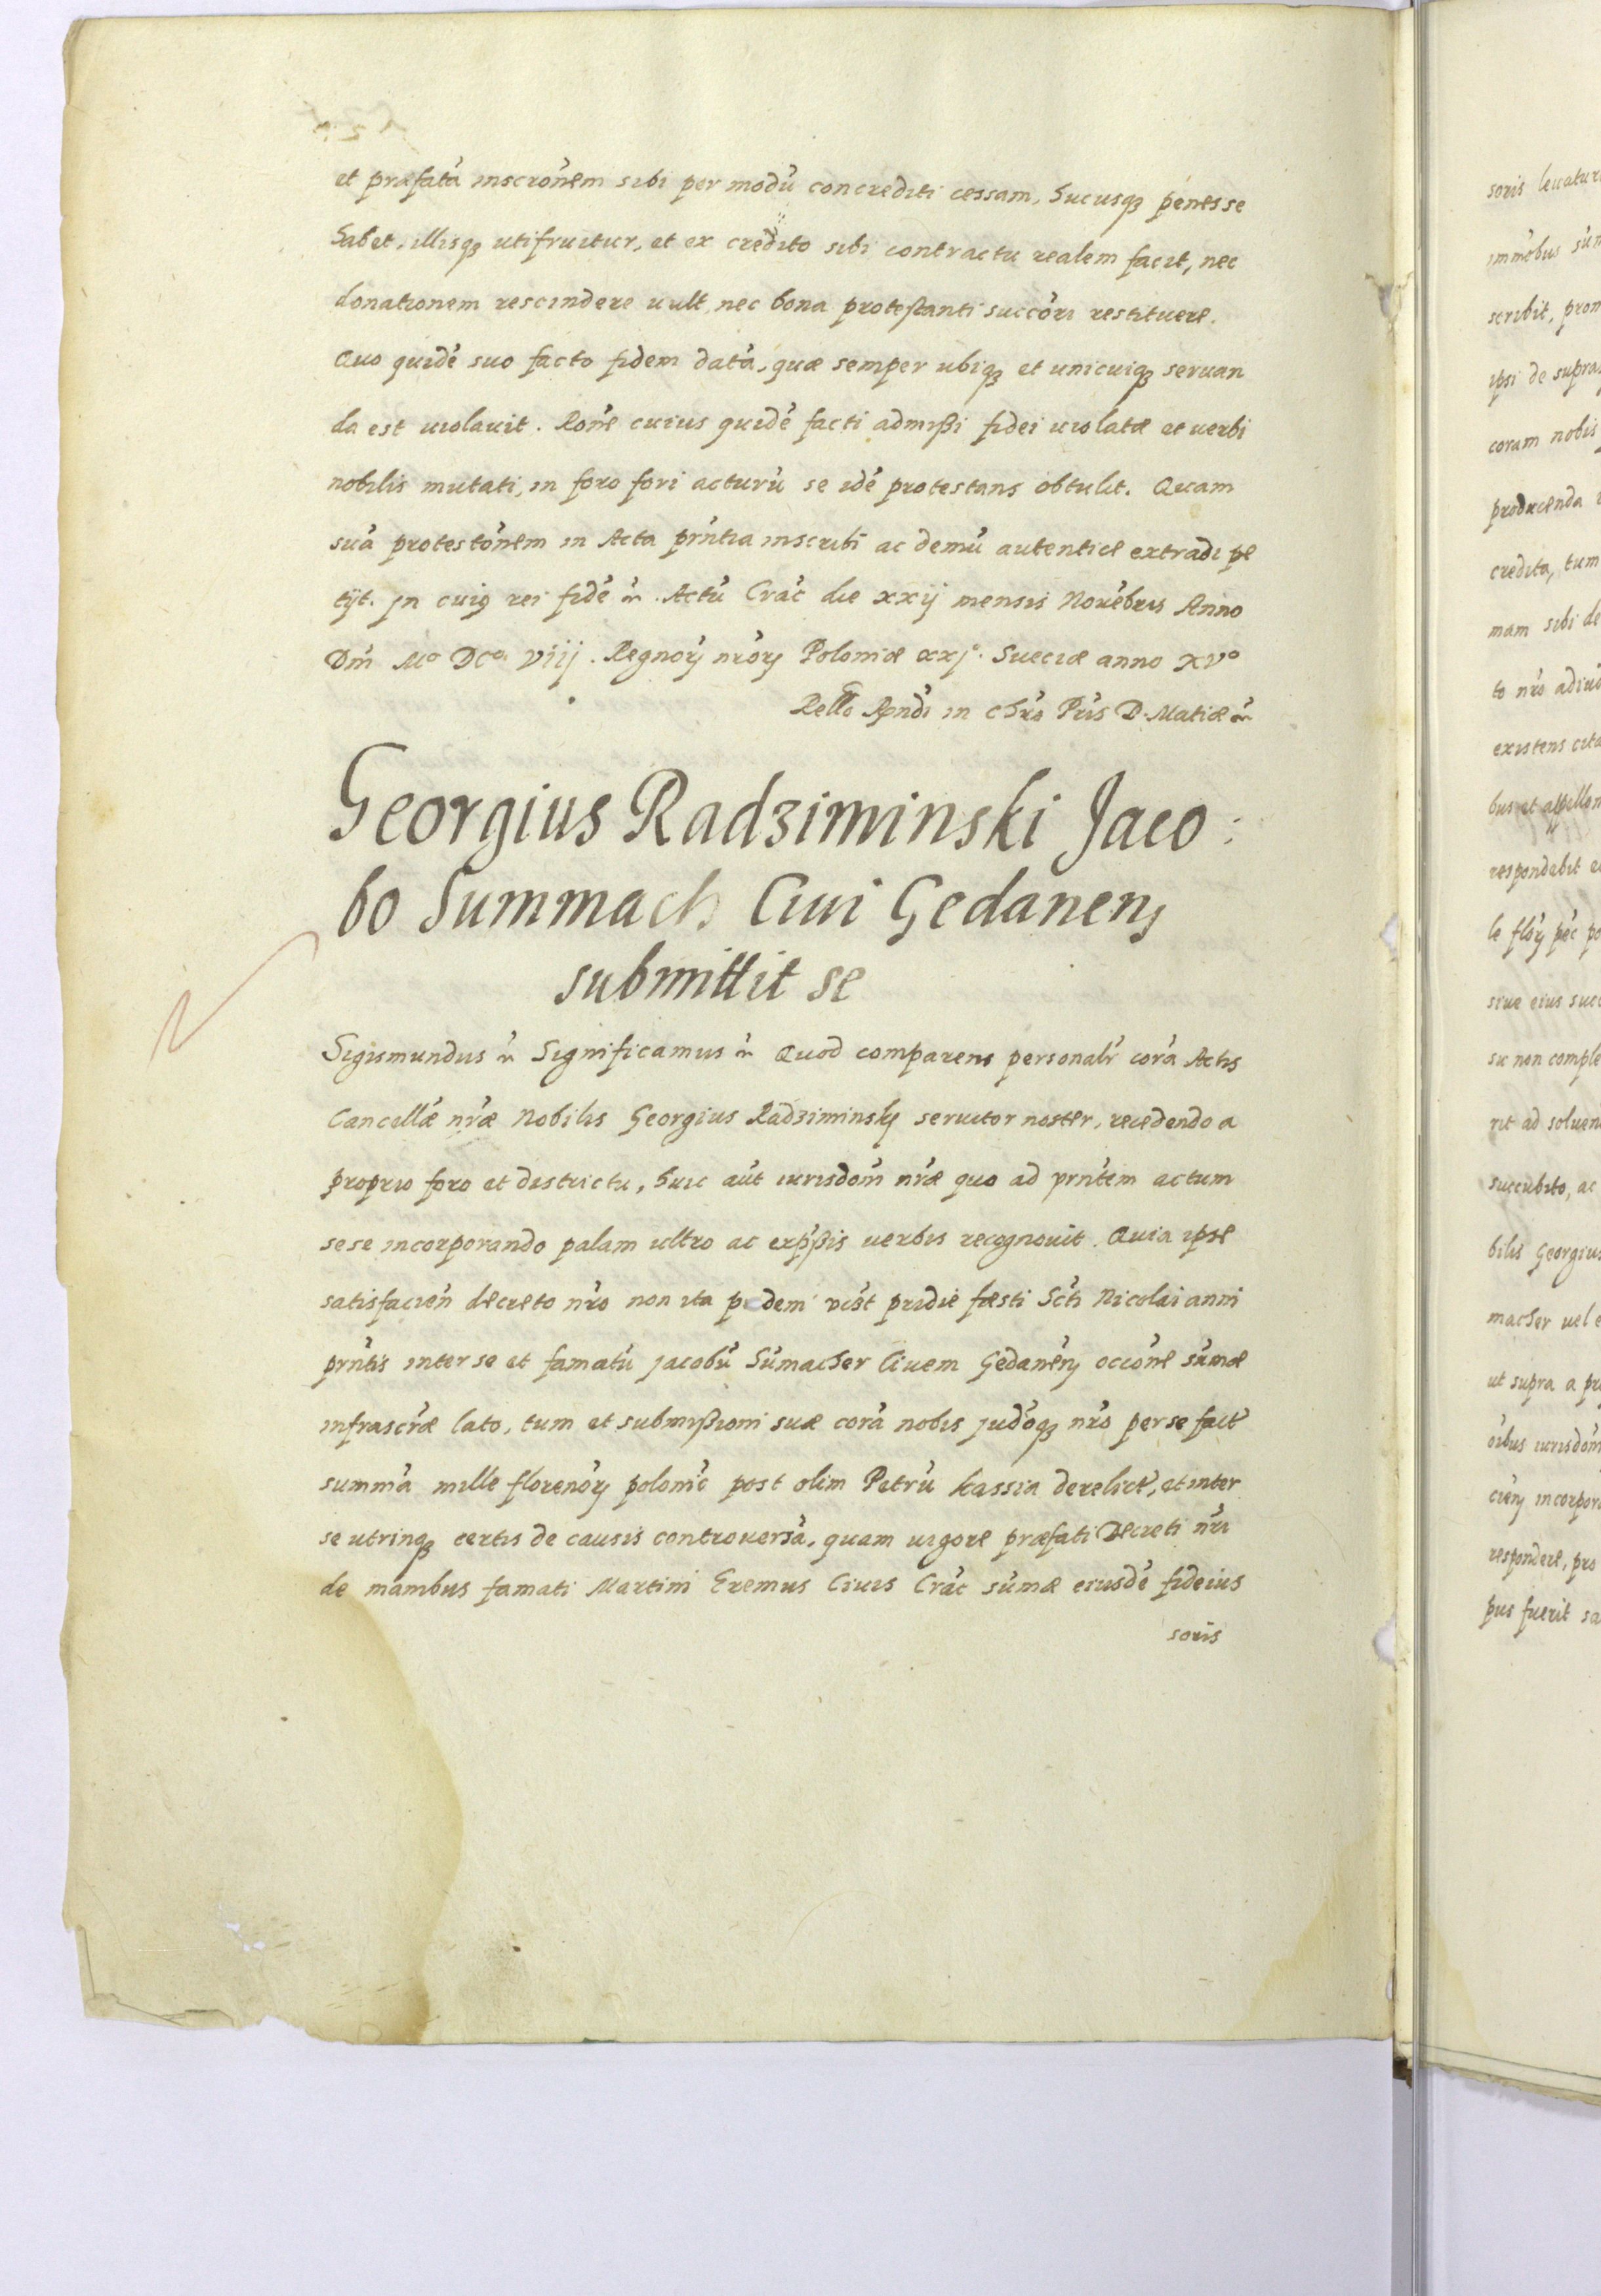 et præfatã inscrõnem sibi per modũ concrediti cessam, hucusqꝫ penes se
habet, illisqꝫ utifruitur, et ex credito sibi contractu realem facit, nec
donationem rescindere uult, nec bona protestanti succõri restituere.
Quo quidẽ suo facto fidem datã, quæ semper ubiqꝫ et unicuiqꝫ seruan
da est uiolauit. Rõne cuius quidẽ facti admißi fidei uiolatæ et uerbi
nobilis mutati, in foro fori acturũ se idẽ protestans obtulit. Quam
suã protestõnem in Acta prñtia inscribi ac demũ autentice extradi pe
tijt. Jn cuiꝰ rei fidẽ etc. Actũ Crac̃ die xxij mensis Nouẽbris Anno
Dm̃ Mº DCº Viij. Regnoꝝ nr̃oꝝ Poloniæ xxjº. Sueciæ anno XVº
Rello Rndi in Chro Pris D. Matiæ etc
Georgius Radziminski Jaco:
bo Summach Ciui Gedanenꝫ
submittit se
Sigismundus etc Significamus etc Quod comparens personalr̃ corã Actis
Cancellæ nr̃æ Nobilis Georgius Radziminsky seruitor noster, recedendo a
proprio foro et districtu, huic aũt iurisdom̃ nr̃æ quo ad prñtem actum
sese incorporando palam ultro ac exp̃ßis uerbis recognouit. Quia ipse
satisfacien̄ decreto nr̃o non ita pridem ult pridie fæsti Scti Nicolai anni
prñtis inter se et famatũ Jacobũ Sũmacher Ciuem Gedanẽnꝫ occõne sũmæ
infrascr̃æ lato, tum et submißioni suæ corã nobis judõqꝫ nr̃o per se fact̃
summã mille florenoꝝ polonic̃ post olim Petrũ kassia derelict̃, et inter
se utrinqꝫ certis de causis controuersã, quam uigore præfati Decreti nr̃i
de manibus famati Martini Eremus Ciuis Crac̃ sũmæ eiusdẽ fideius
soris
soris leuatur
scribit, prom
ipsi de supra
coram nobis
producenda
credita, tum
mam sibi de
to nr̃o
existens cita
respondebit
siue eius succ
su non comple
rit ad soluen
succubito, ac
bilis Georgius
macher uel e
ut supra a
incorpor
respondere, pro
pus fuerit sa